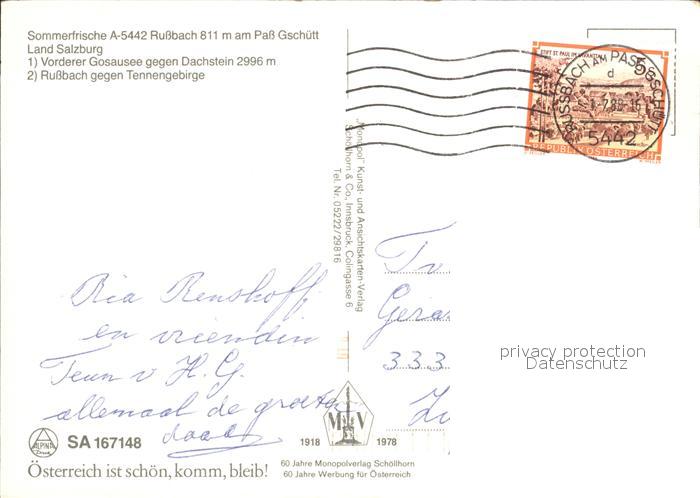 Sommerfrische A-5442 Rußbach 811 m am Paß Gschütt
Land Salzburg
1) Vorderer Gosausee gegen Dachstein 2996 m
2) Rußbach gegen Tennengebirge
STIFT ST. PAUL IM LAVANTTAL
REPUBLIK ÖSTERREICH
RUSSBACH AM PASS GSCHÜTT
d
5442
„Monopol" Kunst- und Ansichtskarten-Verlag
Schöllhorn & Co., Innsbruck, Colingasse 6
Tel. Nr. 05222/29816
Ria Renskoff
en vrienden
Teun v H. G.
allemaal de groeten
Gera
333
privacy protection
Datenschutz
ALPINA
SA 167148
1918 M V 1978
Österreich ist schön, komm, bleib!
60 Jahre Monopolverlag Schöllhorn
60 Jahre Werbung für Österreich